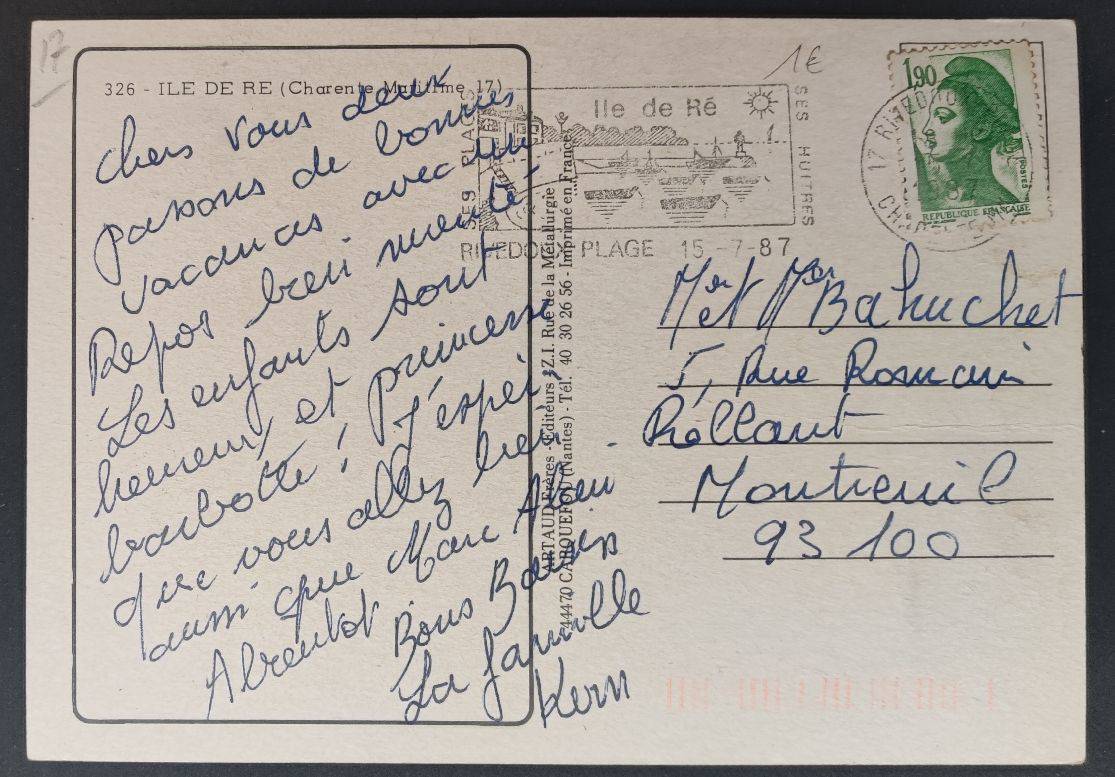 17
1€
326 - ILE DE RE (Charente Maritime 17)
Chers vous deux
passons de bonnes
vacances avec un
Repos bien mérité
Les enfants sont
heureux et princesse
barbotte! J'espère
que vous allez bien
aussi que Marc Alain
A Bientot
Bons Baisers
La famille
Kern
SES PLAGES
Ile de Ré
SES HUITRES
RIVEDOUX PLAGE 15-7-87
17 RIVEDOUX
87
1,90
POSTES
REPUBLIQUE FRANÇAISE
ARTAUD Frères - Éditeurs - Z.I. Rue de la Métallurgie
44470 CARQUEFOU (Nantes) - Tél. 40 30 26 56 - Imprimé en France
Mr et Mme Bahuchet
5, Rue Romain
Rolland
Montreuil
93 100